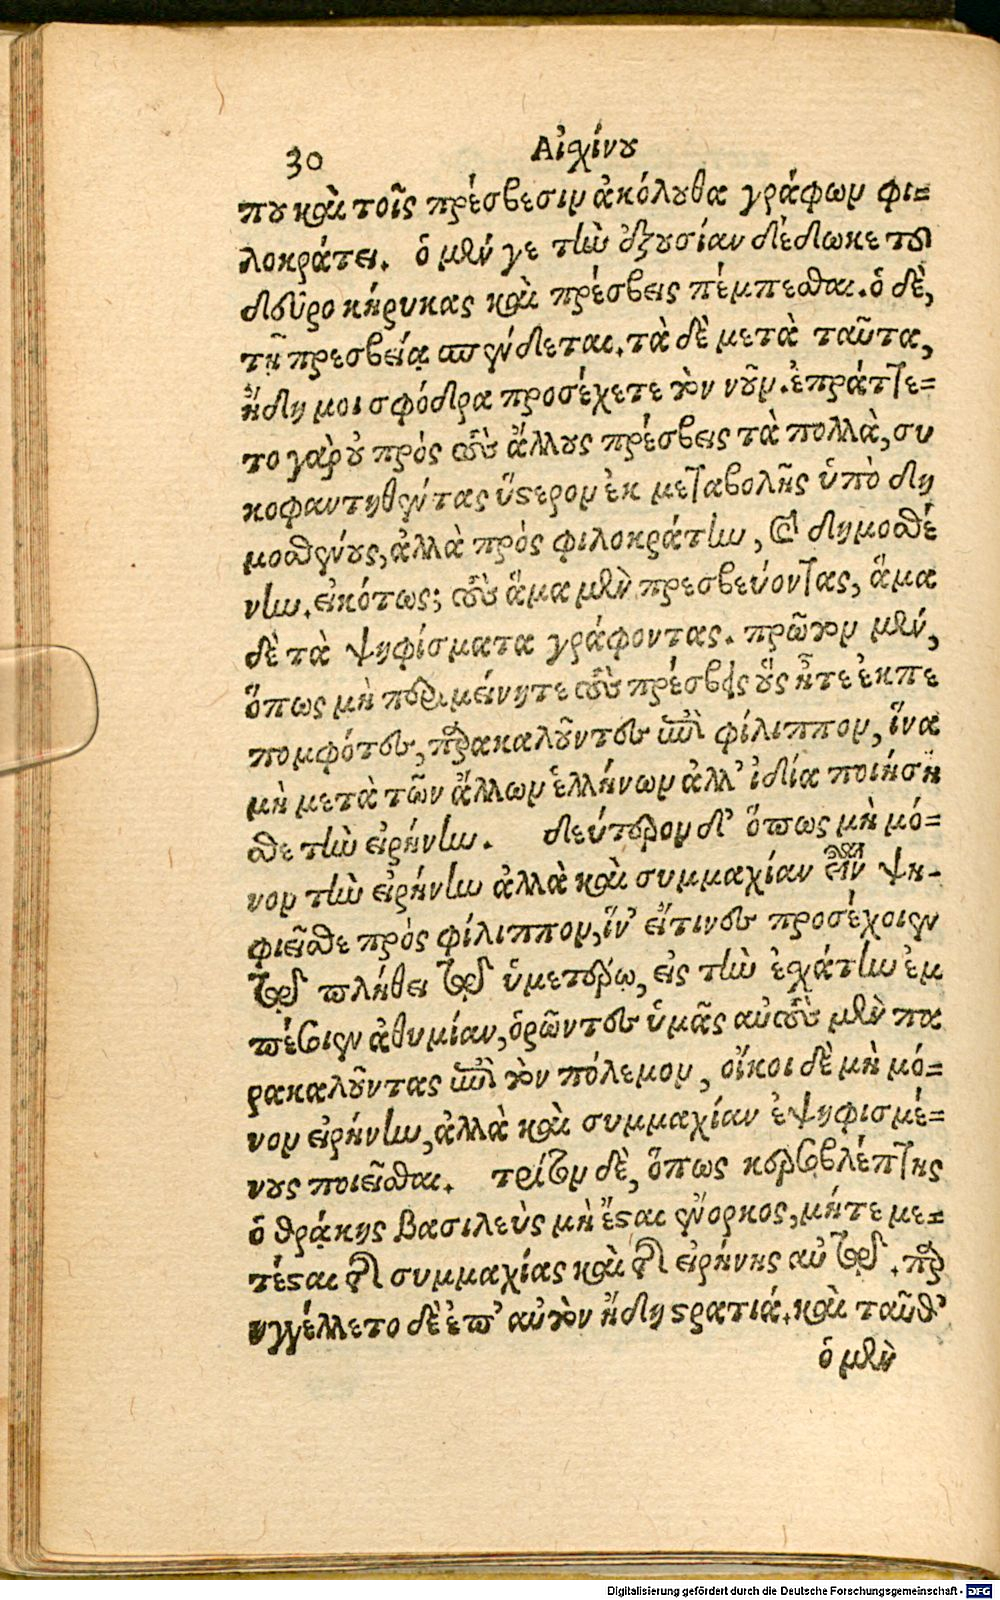 30 Αἰσχίνου
που καὶ τοῖς πρέσβεσιν ἀκόλουθα γράφων φι=
λοκράτει. ὁ μέν γε τὴν ἐξουσίαν δέδωκε τοῦ
δεῦρο κήρυκας καὶ πρέσβεις πέμπεσθαι. ὁ δὲ,
τῇ πρεσβείᾳ σπένδεται. τὰ δὲ μετὰ ταῦτα,
ἤδη μοι σφόδρα προσέχετε τὸν νοῦν. ἐπράττε=
το γὰρ οὐ πρὸς τοὺς ἄλλους πρέσβεις τὰ πολλὰ, συ
κοφαντηθέντας ὕστερον ἐκ μεταβολῆς ὑπὸ δη
μοσθένους, ἀλλὰ πρὸς φιλοκράτην, καὶ δημοσθέ
νην. εἰκότως; τοὺς ἅμα μὲν πρεσβεύοντας, ἅμα
δὲ τὰ ψηφίσματα γράφοντας. πρῶτον μέν,
ὅπως μὴ περιμείνητε τοὺς πρέσβεις οὓς ἦτε ἐκπε
πομφότες, παρακαλοῦντες ἐπὶ φίλιππον, ἵνα
μὴ μετὰ τῶν ἄλλων ἑλλήνων ἀλλ' ἰδία ποιήση
σθε τὴν εἰρήνην. δεύτερον δ' ὅπως μὴ μό=
νον τὴν εἰρήνην ἀλλὰ καὶ συμμαχίαν εἶναι ψη-
φιεῖσθε πρὸς φίλιππον, ἵν' εἴτινες προσέχοιεν
τῷ πλήθει τῷ ὑμετέρῳ, εἰς τὴν ἐσχάτην ἐμ
πέσοιεν ἀθυμίαν, ὁρῶντες ὑμᾶς αὐτοὺς μὲν πα
ρακαλοῦντας ἐπὶ τὸν πόλεμον, οἴκοι δὲ μὴ μό=
νον εἰρήνην, ἀλλὰ καὶ συμμαχίαν ἐψηφισμέ=
νους ποιεῖσθαι. τρίτον δὲ, ὅπως κερσοβλέπτης
ὁ θράκης βασιλεὺς μὴ ἔσται ἔνορκος, μήτε με=
τέσται τῆς συμμαχίας καὶ τῆς εἰρήνης αὐτῷ. παρ
ηγγέλλετο δὲ ἐπ' αὐτὸν ἤδη στρατιά. καὶ ταῦθ'
ὁ μὲν
Digitalisierung gefördert durch die Deutsche Forschungsgemeinschaft - DFG